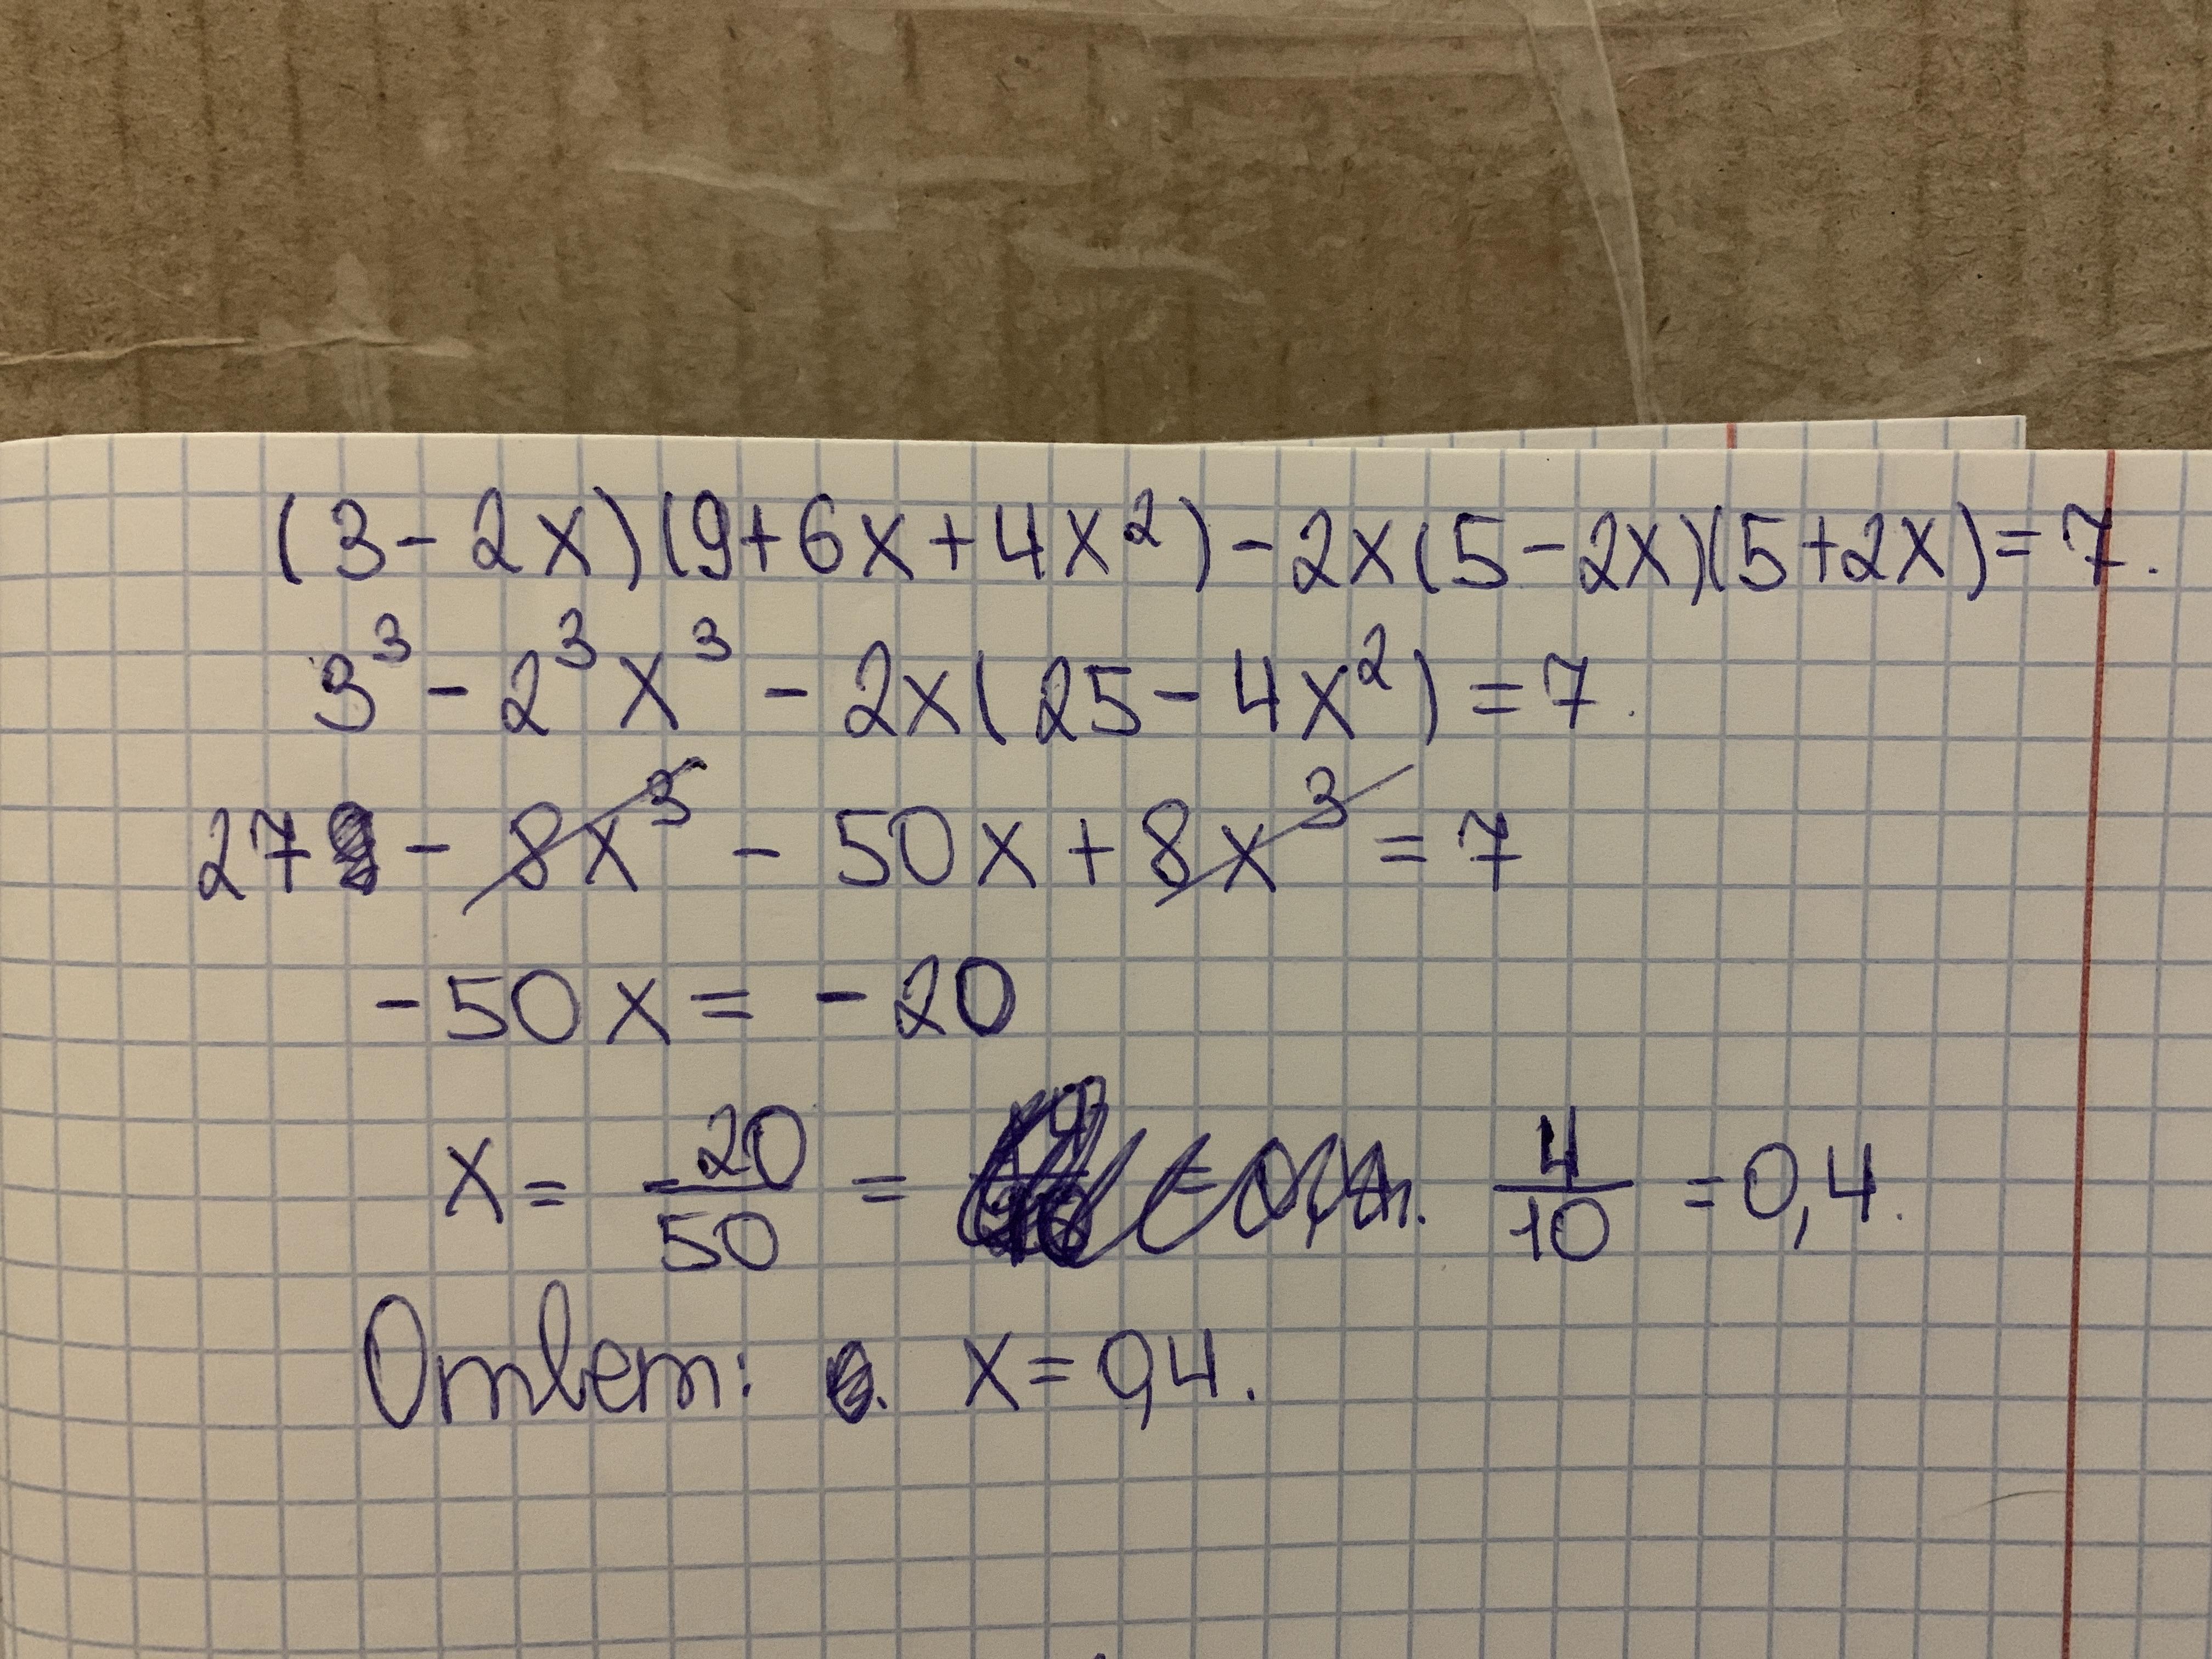 (3-2x)(9+6x+4x²)-2x(5-2x)(5+2x)=7.
3³-2³x³-2x(25-4x²)=7.
27-8x³-50x+8x³=7
-50x=-20
x=20/50= 4/10=0,4.
Ответ: x=0,4.